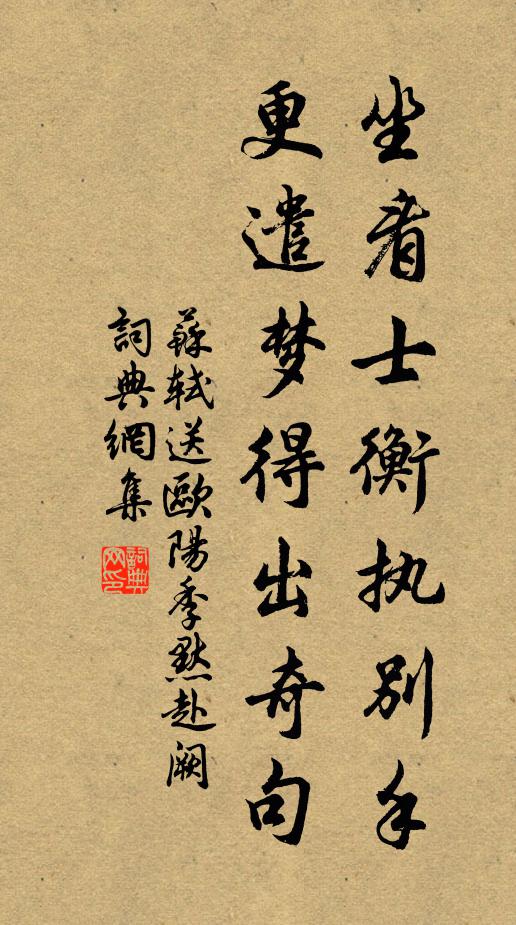 坐看士衡执别手
更遣梦得出奇句
蘇軾送歐陽季默赴阙
詞典網集
詞典网印